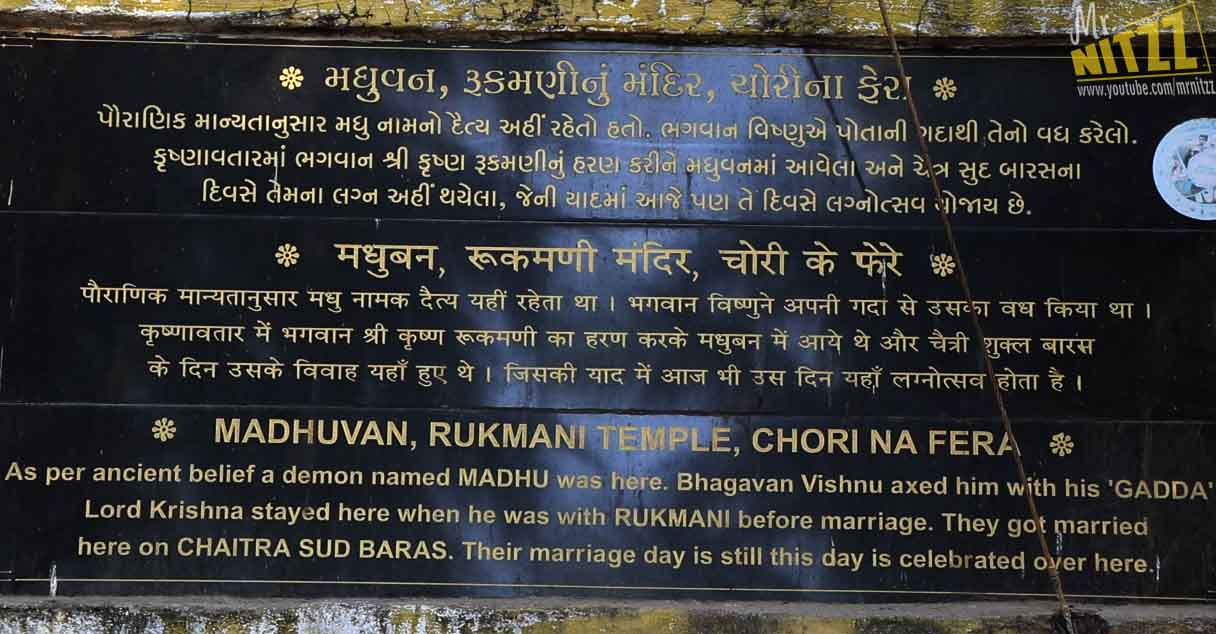 Mr.
NITZZ
www.youtube.com/mrnitzz
મધુવન, રૂકમણીનું મંદિર, ચોરીના ફેરા
પૌરાણિક માન્યતાનુસાર મધુ નામનો દૈત્ય અહીં રહેતો હતો. ભગવાન વિષ્ણુએ પોતાની ગદાથી તેનો વધ કરેલો.
કૃષ્ણાવતારમાં ભગવાન શ્રી કૃષ્ણ રૂકમણીનું હરણ કરીને મધુવનમાં આવેલા અને ચૈત્ર સુદ બારસના
દિવસે તેમના લગ્ન અહીં થયેલા, જેની યાદમાં આજે પણ તે દિવસે લગ્નોત્સવ યોજાય છે.
मधुबन, रूकमणी मंदिर, चोरी के फेरे
पौराणिक मान्यतानुसार मधु नामक दैत्य यहीं रहेता था । भगवान विष्णुने अपनी गदा से उसका वध किया था ।
कृष्णावतार में भगवान श्री कृष्ण रूकमणी का हरण करके मधुबन में आये थे और चैत्री शुक्ल बारस
के दिन उसके विवाह यहाँ हुए थे । जिसकी याद में आज भी उस दिन यहाँ लग्नोत्सव होता है ।
MADHUVAN, RUKMANI TEMPLE, CHORI NA FERA
As per ancient belief a demon named MADHU was here. Bhagavan Vishnu axed him with his 'GADDA'
Lord Krishna stayed here when he was with RUKMANI before marriage. They got married
here on CHAITRA SUD BARAS. Their marriage day is still this day is celebrated over here.